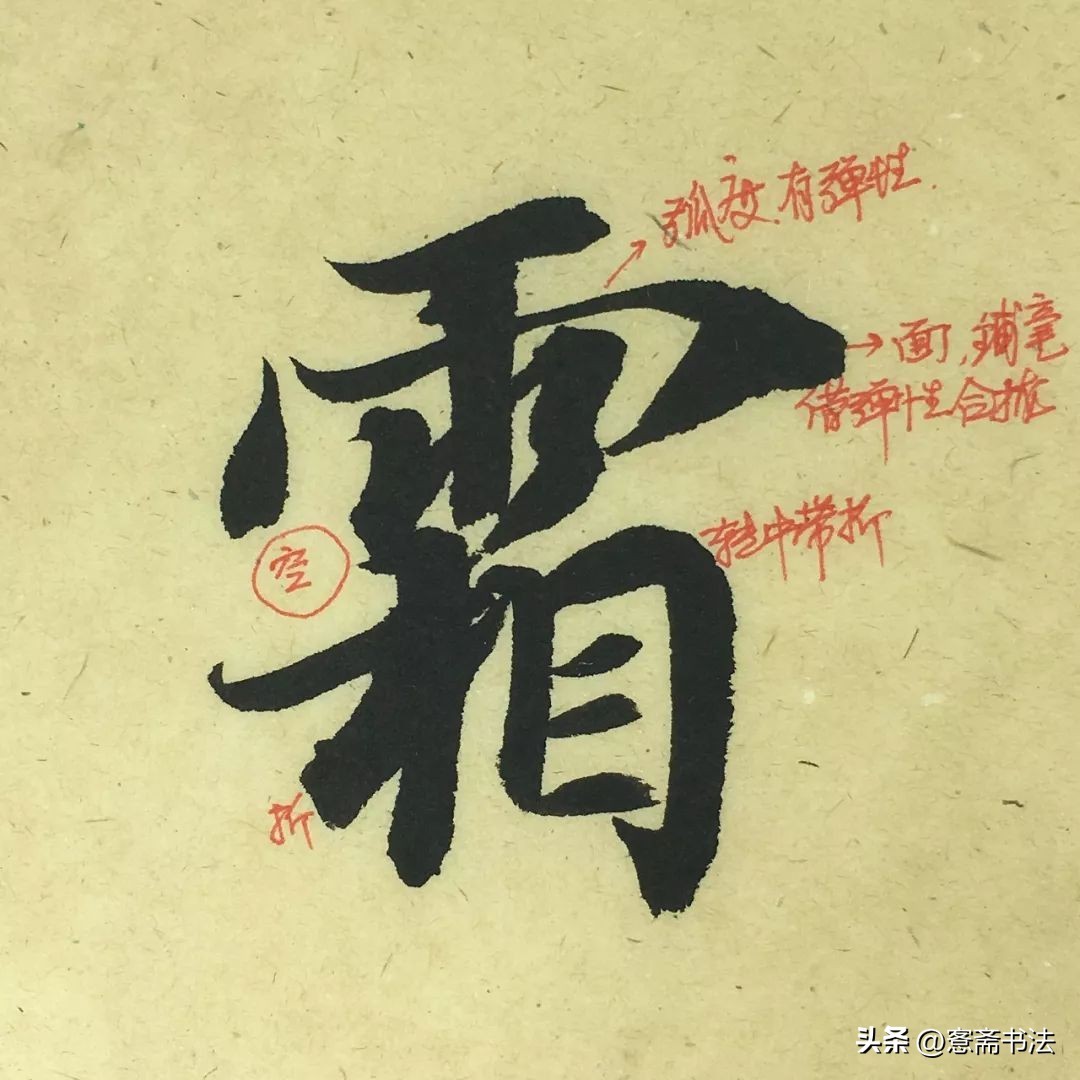 霜
弧度,有弹性.
面,铺毫
借弹性合拢
转中带折
空
折
头条 @窓斋书法